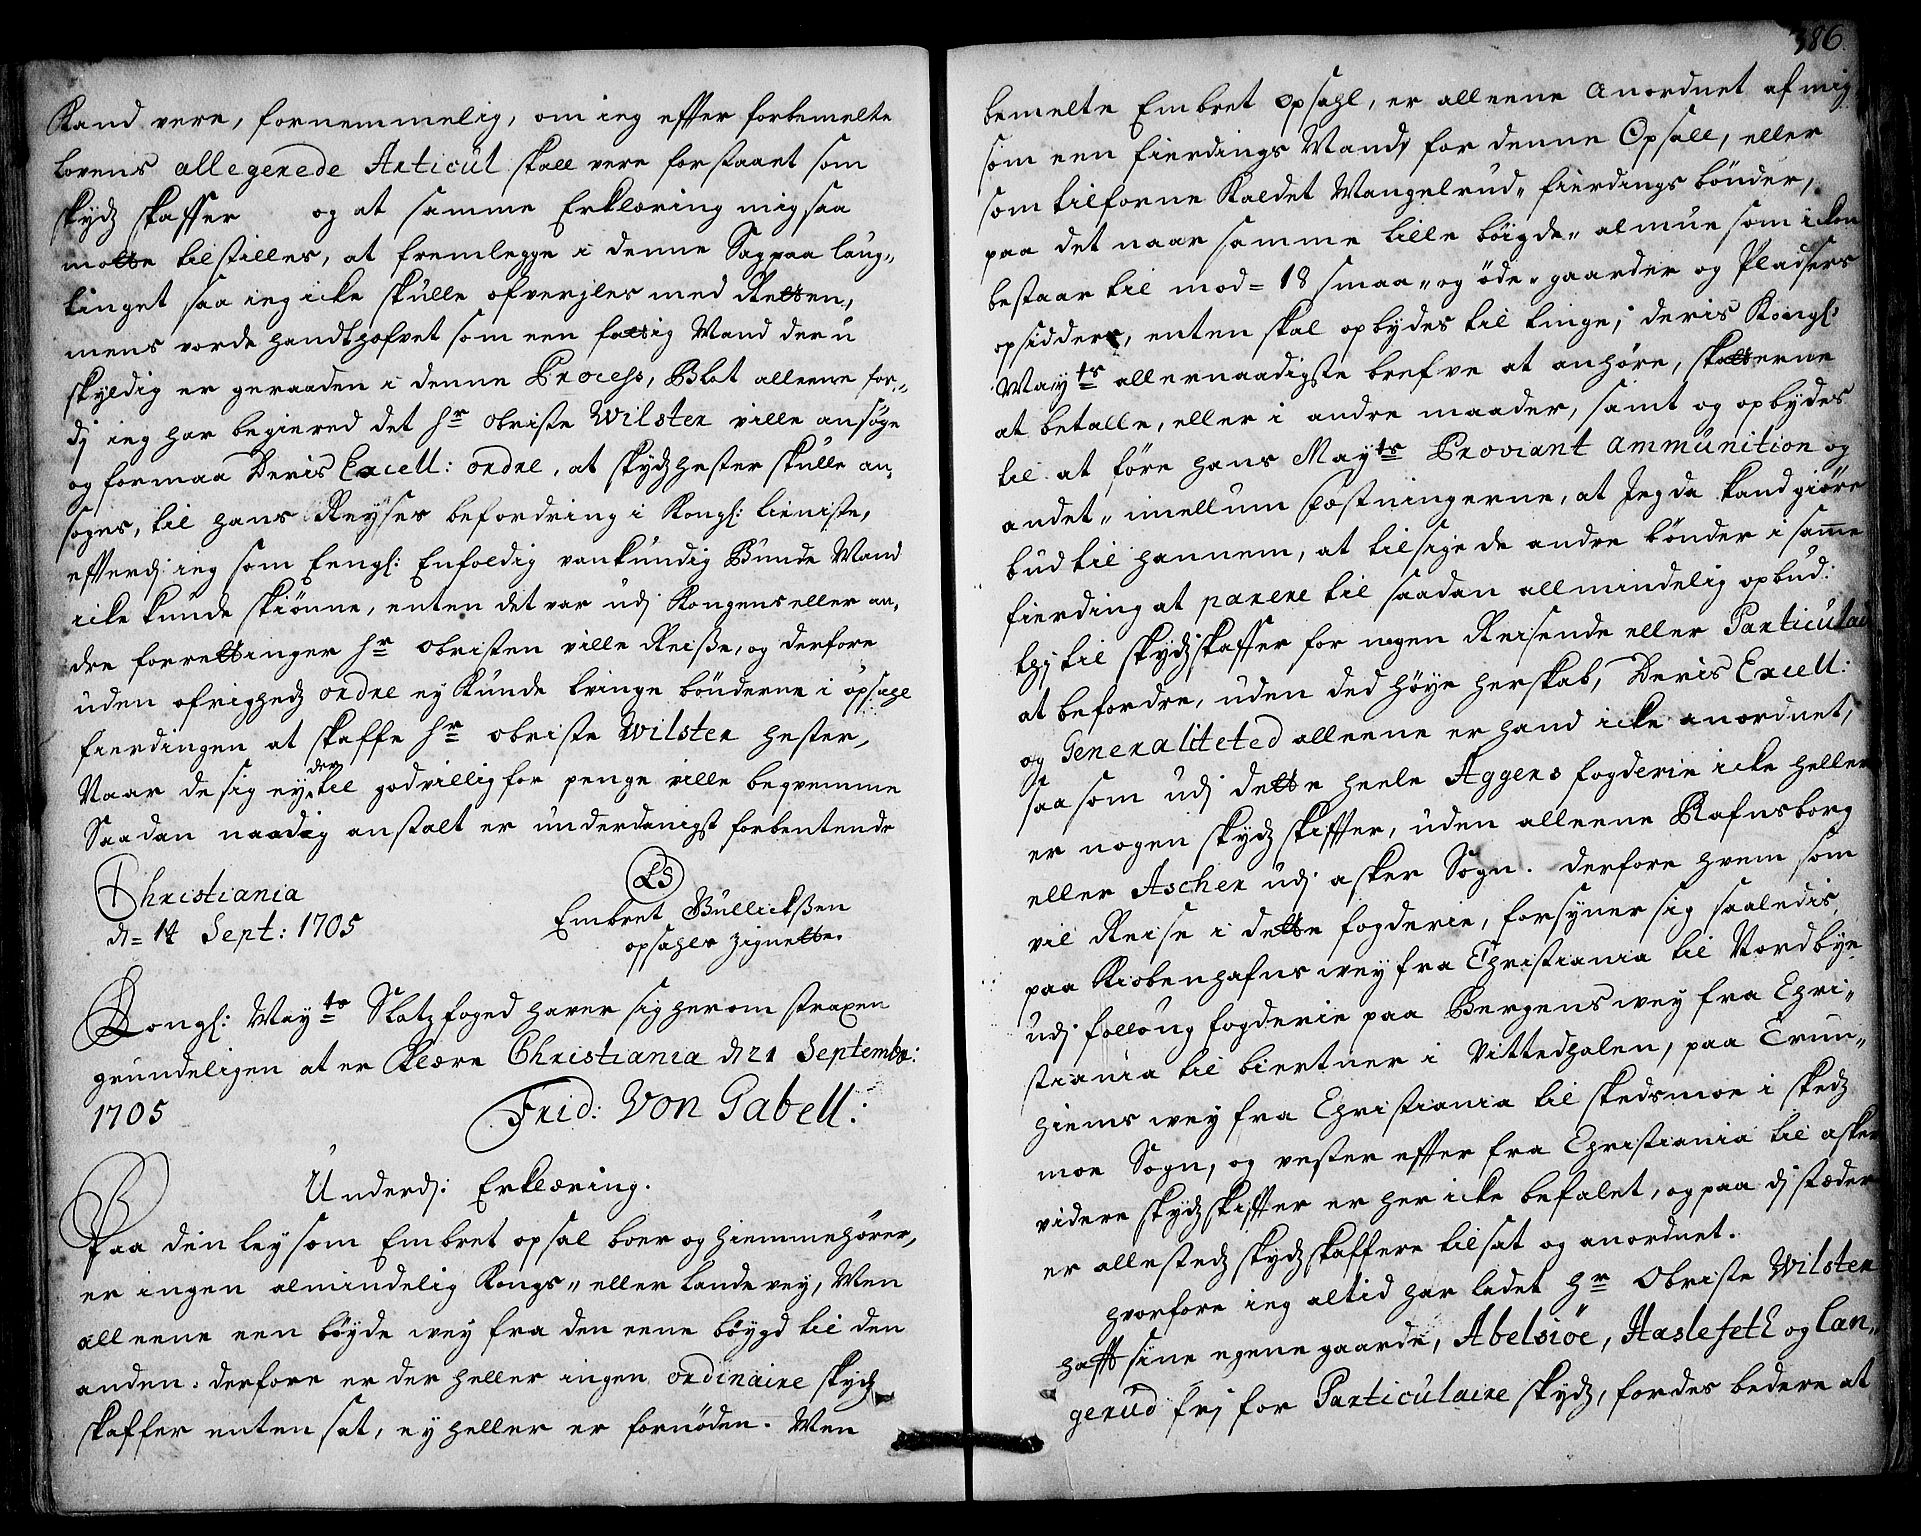 Kand vere, fornemmelig, om ieg effter forbemelte
lovens allegerede Articul skall vere forstaaet som
skydtz skaffer og at samme Erklæring mig saa
motte tilstilles, at fremlegge i denne Sag paa laug-,
tinget saa ieg icke skulle ofverjles med Retten,
mens vorde handthafvet som een fattig Mand der u
skyldig er geraaden i denne Process, Blot alleene for-,
dj ieg har begiered det hr Obriste Wilster ville ansøge
og formaa Deris Excell: ordre, at skydtzhester skulle an,
soges, til hans Reyses befordring i Kongl: tieniste,
efterdj ieg som Eengl: Enfoldig vankundig Bunde Mand
icke kunde skiønne, enten det var udj Kongens eller an,
dre forrettinger hr Obristen ville Reiße, og derfore
uden ofrighedtz ordre ey kunde tvinge bønderne i opsahl
fierdingen at skaffe hr Obriste Wilster hester,
Naar de sig ey der til godvillig for penge ville beqvemme
Saadan naadig anstalt er underdanigst forbentende
Christiania
d= 14 Sept: 1705
LS
Embret Bullickßen
opsahls Zignette.
Kongl: Mayts Slotzfoged haver sig herom straxen
grundeligen at er klære Christiania d 21 Septembr:
1705
Frid: Von Gabell:
Underd: Erklæring.
Paa den ley som Embret opsal boer og hiemmehører,
er ingen almindelig Kongs- eller landevey, Men
alleene een bøyde wey fra den eene bøygd til den
anden. derfore er der heller ingen ordinaire skydtz
skaffer enten sat, ey heller er fornøden. Men
386
bemelte Embret opsahl, er alleene anordnet af mig
som een fierdings Mand, for denne Opsall, eller
som tilforne kaldet Mangelrud- fierdings bønder,
paa det naar samme lille bøigde- almue som icken
bestaar til mod= 18 smaa- og øde- gaarder og Pladsers
opsiddere, enten skal opbydes til tinge, deris Kongl:
Mayts allernaadigste brefve at anhøre, skatterne
at betalle, eller i andre maader, samt og opbydes
til at føre hans Mayts Proviant Ammunition og
andet- imellum Fæstningerne, at Jeg da kand giøre
bud til hannem, at tilsige de andre bønder i samme
fierding at parere til saadan allmindelig opbud:
thj til skydtzskaffer for nogen Reisende eller Particulair
at befordre, uden ded høye herskab, Deris Excell:
og Generaliteted alleene er hand icke anordnet,
saa som udj dette heele Aggers fogderie icke heller
er nogen skydtz skiffter, uden alleene Rafnsborg
eller Ascher udj asker Sogn. derfore hvem som
vil Reise i dette fogderie, forsyner sig saaledis,
paa Kiobenhafns wey fra Christiania til Nordbye
udj follong fogderie paa Bergens wey fra Chri-,
stiania til biertner i Nittedhalen, paa Trun-,
hiems wey fra Christiania til skedsmoe i skedtz
moe Sogn, og vester effter fra Christiania til asker
videre skydtzskiffter er her icke befalet, og paa dj stæder
er allestedtz skydtzskaffere tilsat og anordnet.
hvorfore ieg altid har ladet hr Obriste Wilster
hafft sine egene gaarde, Abelsiøe, Haslefeth og Lan-,
gerud frj for Particulaire skydtz, fordes bedere at